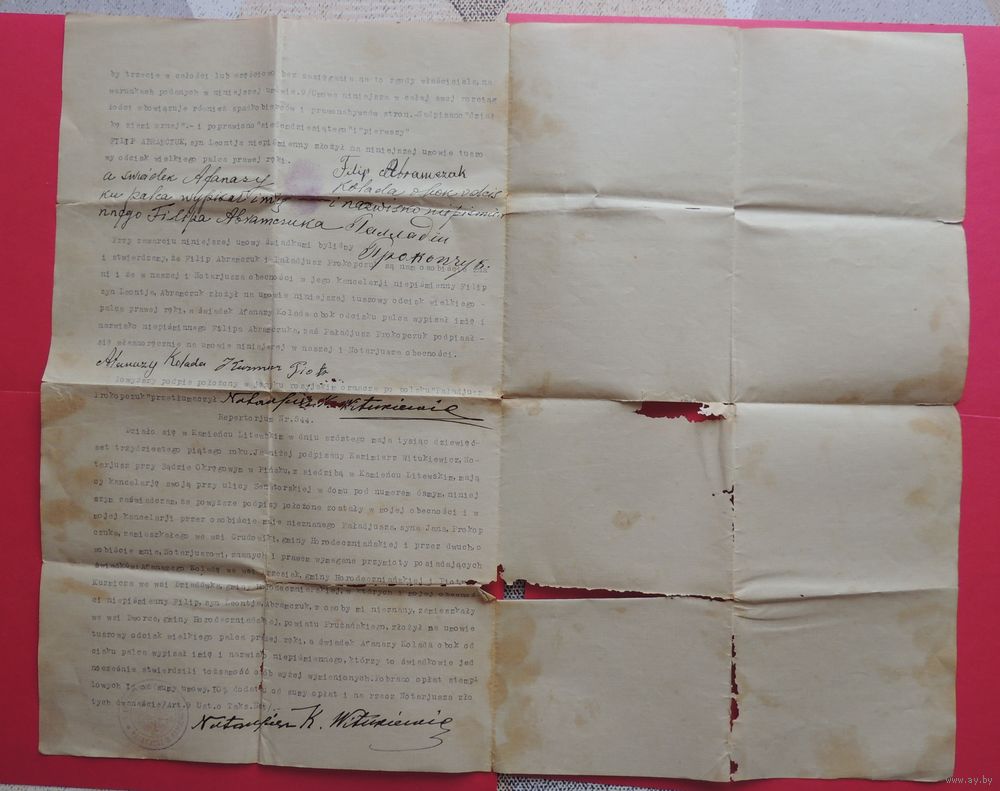 by trzecie w całości lub częściowo bez zasięgania na to zgody właściciela, na
warunkach podanych w niniejszej umowie. 9/Umowa niniejsza w całej swej rozciąg
łości obowiązuje również spadkobierców i prawonabywców stron.-Nadpisano "dział
kę ziemi ornej".- i poprawiono "siedemdziesiątego" i "pierwszy"
FILIP ABRAMCZUK, syn Leontja niepiśmienny złożył na niniejszej umowie tuszo
wy odcisk wielkiego palca prawej ręki.
Filip Abramczak
a świadek Afanazy Kolada obok odcis
ku palca wypisał imię i nazwisko niepiśmien
nnego Filipa Abramczuka Палладiй
Прокопчук
Przy zawarciu niniejszej umowy świadkami byliśmy
i stwierdzamy, że Filip Abramczuk i Paładjusz Prokopczuk są nam osobiście zna
ni i że w naszej i Notarjusza obecności w jego kancelarji niepiśmienny Filip
syn Leontja, Abramczuk złożył na umowie niniejszej tuszowy odcisk wielkiego -
palca prawej ręki, a świadek Afanazy Kolada obok odcisku palca wypisał imię i
nazwisko niepiśmiennego Filipa Abramczuka, zaś Paładjusz Prokopczuk podpisał -
się własnoręcznie na umowie niniejszej w naszej i Notarjusza obecności.
Afanazy Kolada Kurmicz Piotr
Powyższy podpis położony w języku rosyjskim oznacza po polsku "Paładjusz
Prokopczuk" przetłumaczył Notarjusz K. Witukiewicz
Repertorjum Nr. 544.
Działo się w Kamieńcu Litewskim w dniu szóstego maja tysiąc dziewięć-
set trzydziestego piątego roku. Ja niżej podpisany Kazimierz Witukiewicz, No-
tarjusz przy Sądzie Okręgowym w Pińsku, z siedzibą w Kamieńcu Litewskim, mają
cy kancelarję swoją przy ulicy Senatorskiej w domu pod numerem ósmym, niniej
szym zaświadczam, że powyższe podpisy położone zostały w mojej obecności i w
mojej kancelarji przez osobiście mnie nieznanego Paładjusza, syna Jana, Prokop
czuka, zamieszkałego we wsi Grudowiki, gminy Horodeczniańskiej i przez dwuch, o
sobiście mnie, Notarjuszowi, znanych i prawem wymagane przymioty posiadających
świadków: Afanazego Koladę we wsi gminy Horodeczniańskiej i Piotra
Kurmicza we wsi Dziadówka, gminy Horodeczniańskiej, w których i mojej obecnoś
ci niepiśmienny Filip, syn Leontja, Abramczuk, z osoby mi nieznany, zamieszkały
we wsi Dworce, gminy Horodeczniańskiej, powiatu Prużańskiego, złożył na umowie
tuszowy odcisk wielkiego palca prawej ręki, a świadek Afanazy Kolada obok od
cisku palca wypisał imię i nazwisko niepiśmiennego, którzy to świadkowie jed
nocześnie stwierdzili tożsamość osób wyżej wymienionych. Pobrano opłat stempl
lowych 1% od sumy umowy, 10% dodatku od sumy opłat i na rzecz Notarjusza zło
tych dwanaście/Art. 9 Ust. o Taks. Not/.
Notarjusz K. Witukiewicz
www.ay.by